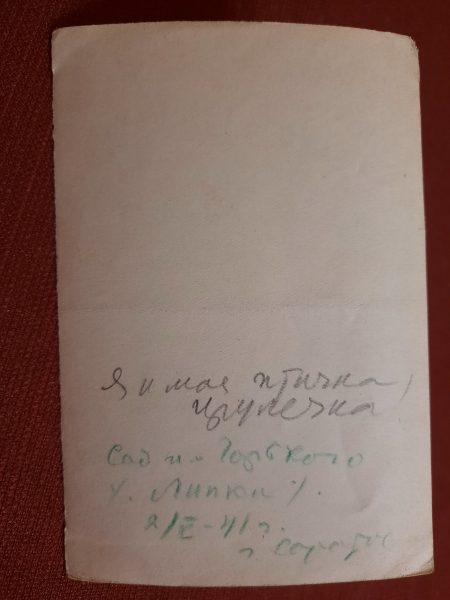 Я и моя птичка,
цыпочка
Сад им Горького
/. Липки /.
2/V-41 г.
г. Саратов